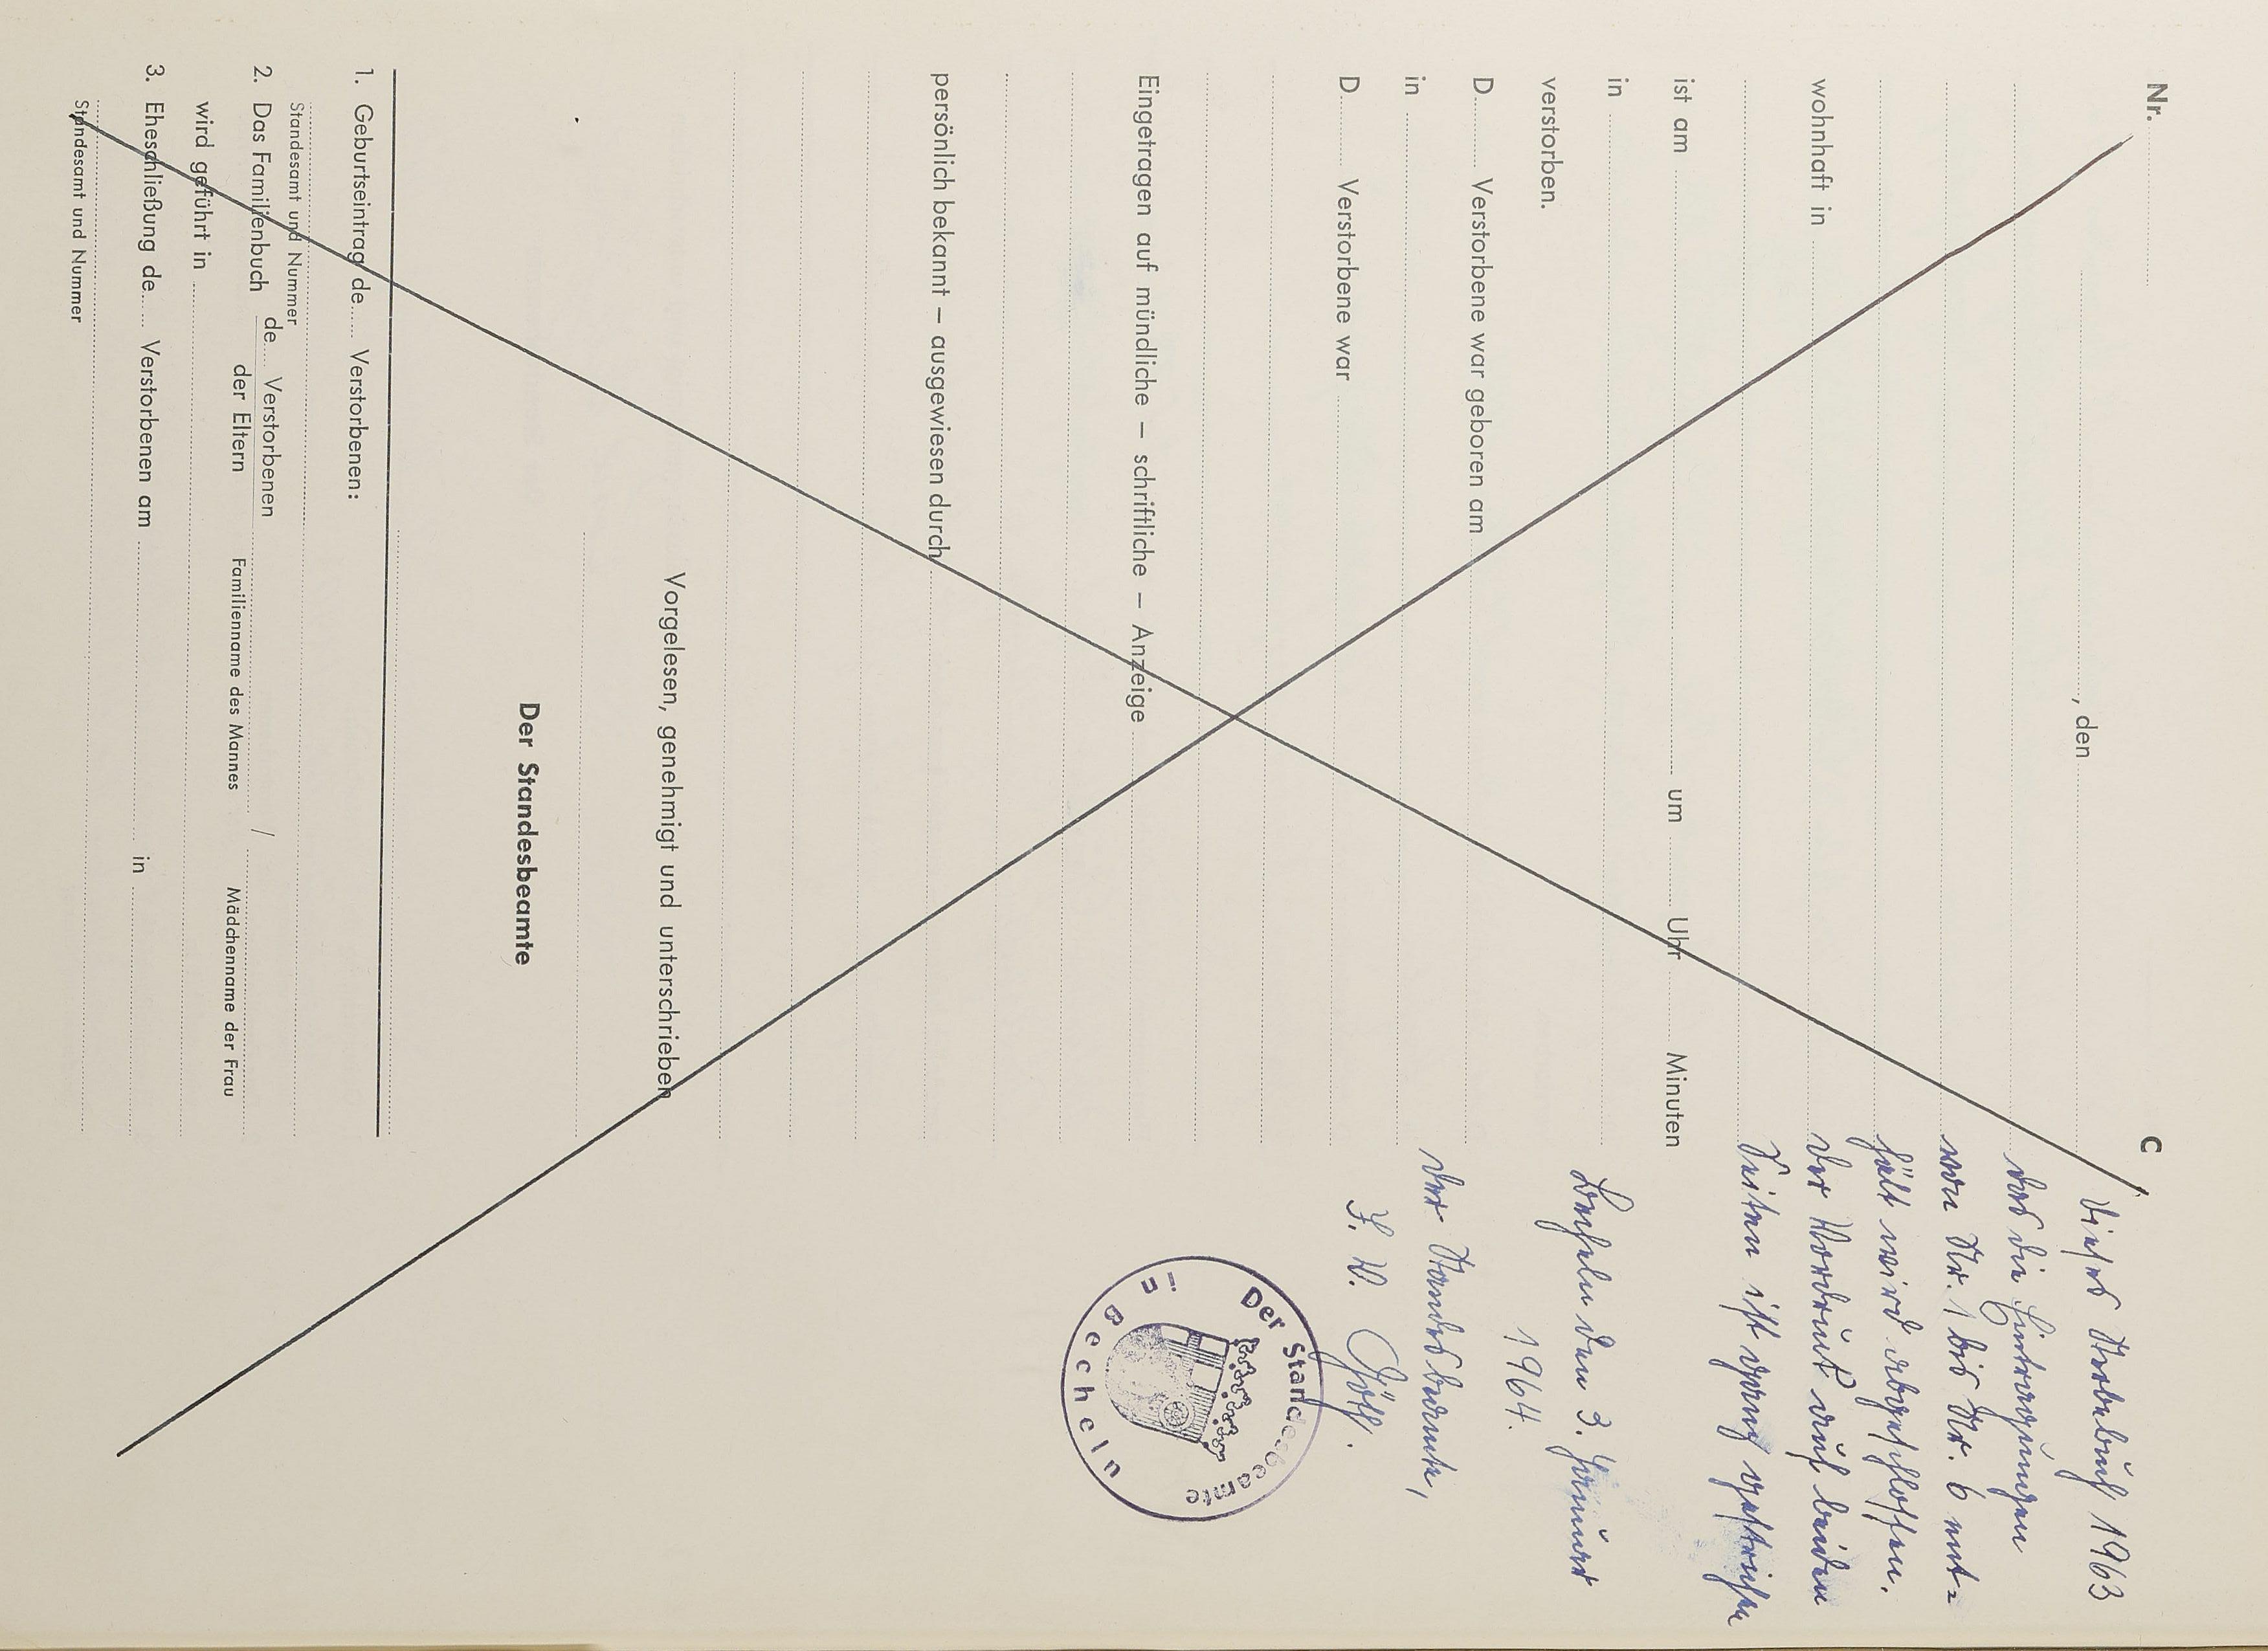 Nr.
C
, den
wohnhaft in
ist am um Uhr Minuten
in
verstorben.
D Verstorbene war geboren am
in
D Verstorbene war
Eingetragen auf mündliche – schriftliche – Anzeige
persönlich bekannt – ausgewiesen durch
Vorgelesen, genehmigt und unterschrieben
Der Standesbeamte
1. Geburtseintrag de Verstorbenen:
Standesamt und Nummer
2. Das Familienbuch de Verstorbenen
der Eltern
Familienname des Mannes / Mädchenname der Frau
wird geführt in
3. Eheschließung de Verstorbenen am in
Standesamt und Nummer
Dieses Sterbebuch 1963
das die Eintragungen
von Nr. 1 bis Nr. 6 ent=
hält wird abgeschlossen.
Der Vordruck auf beiden
Seiten ist ganz gestrichen
Becheln den 3. Januar
1964.
Der Standesbeamte,
I. V.
Der Standesbeamte
in Becheln